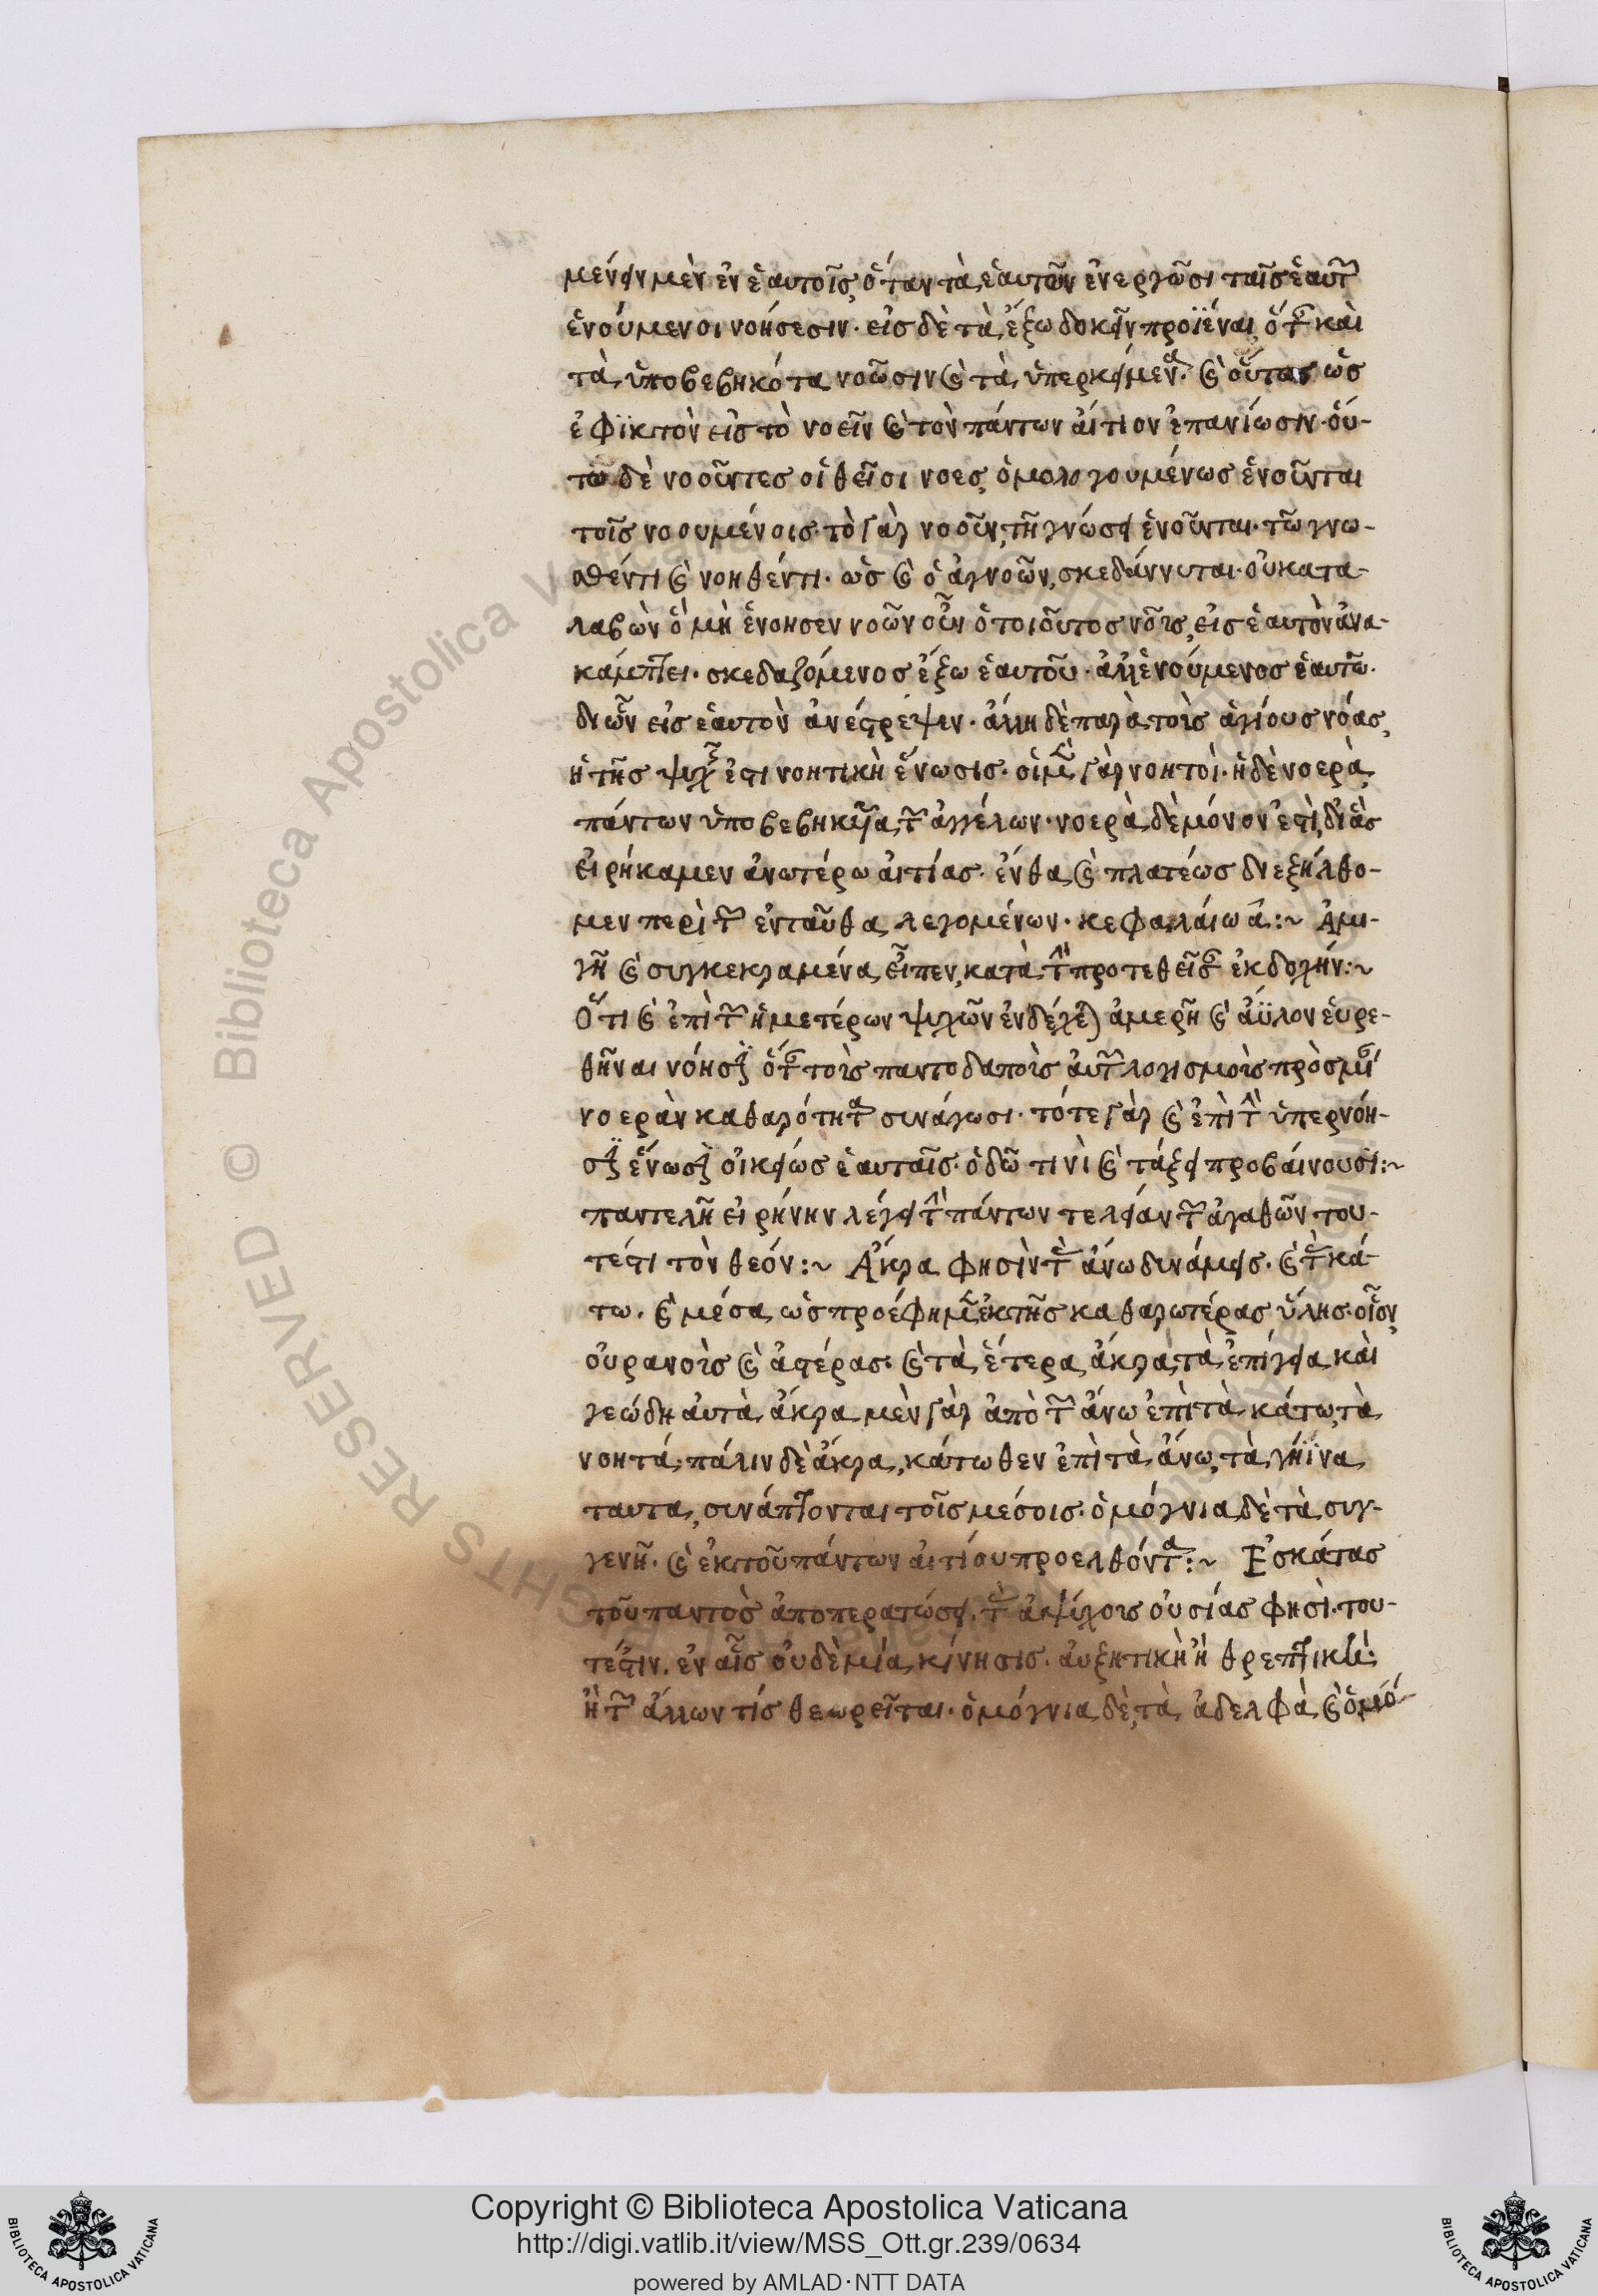 μένειν μὲν ἐν ἑαυτοῖς, ὅταν τὰ ἑαυτῶν ἐνεργῶσι ταῖς ἑαυτῶν
ἑνούμενοι νοήσεσιν. εἰς δὲ τὰ ἔξω δοκεῖν προϊέναι, ὅταν καὶ
τὰ ὑποβεβηκότα νοῶσιν καὶ τὰ ὑπερκείμενα. καὶ οὕτως ὡς
ἐφϊκτὸν εἰς τὸ νοεῖν καὶ τὸν πάντων αἴτιον ἐπανίωσιν. οὕ-
τω δὲ νοοῦντες οἱ θεῖοι νοες, ὁμολογουμένως ἑνοῦνται
τοῖς νοουμένοις. τὸ γὰρ νοοῦν, τῆ γνώσει ἑνοῦνται. τῶ γνω-
σθέντι καὶ νοηθέντι. ὡς καὶ ὁ ἀγνοῶν, σκεδάννυται. οὐ κατα-
λαβὼν ὃ μὴ ἐνοησεν νοῶν οὖν ὁ τοιοῦτος νοῦς, εἰς ἑαυτὸν ἀνα-
κάμπτει. σκεδαζόμενος ἔξω ἑαυτοῦ. ἀλλ' ἑνούμενος ἑαυτῶ.
δι ὧν εἰς ἑαυτὸν ἀνέστρεψεν. ἄλλη δὲ παρὰ τοὺς ἁγίους νόας,
ἡ τῆς ψυχῆς ἐστι νοητικὴ ἕνωσις. οἱ μὲν γὰρ νοητοί. ἡ δὲ νοερὰ
πάντων ὑποβεβηκυῖα τῶν ἀγγέλων. νοερὰ δὲ μόνον ἐστὶ, δι ἃς
εἰρήκαμεν ἀνωτέρω αἰτίας. ἔνθα καὶ πλατέως διεξήλθο-
μεν περὶ τῶν ἐνταῦθα λεγομένων. κεφαλαίω α:~ Ἀμι-
γῆ καὶ συγκεκραμένα εἶπεν, κατὰ τὴν προτεθεῖσαν ἐκδοχήν:~
Ὅτι καὶ ἐπὶ τῶν ἡμετέρων ψυχῶν ἐνδέχεται ἀμερῆ καὶ ἄϋλον εὑρε-
θῆναι νόησιν ὅταν τοὺς παντοδαποὺς αὐτῶν λογισμοὺς πρὸς μίαν
νοερὰν καθαρότητα συνάγωσι. τότε γὰρ καὶ ἐπὶ τὴν ὑπερνόη-
σιν ἕνωσιν οἰκείως ἑαυταῖς. ὁδῶ τινὶ καὶ τάξει προβαίνουσι:~
παντελῆ εἰρήνην λέγει τὴν πάντων τελείαν τῶν ἀγαθῶν. του-
τέστι τὸν θεόν:~ Ἄκρα φησὶν τὰς ἄνω δυνάμεις. καὶ τὰς κά-
τω. καὶ μέσα, ὡς προέφημεν, ἐκ τῆς καθαρωτέρας ὕλης. οἷον,
οὐρανοὺς καὶ ἀστέρας. καὶ τὰ ἕτερα ἄκρα, τὰ ἐπίγεια καὶ
γεώδη αὐτὰ, ἄκρα μὲν γὰρ ἀπὸ τῶν ἄνω ἐπὶ τὰ κάτω, τὰ
νοητά. πάλιν δὲ ἄκρα, κάτωθεν ἐπὶ τὰ ἄνω, τὰ γήϊνα
ταυτα, συνάπτονται τοῖς μέσοις. ὁμόγνια δὲ τὰ συγ-
γενῆ. καὶ ἐκ τοῦ πάντων αἰτίου προελθόντα:~ Ἐσχάτας
τοῦ παντὸς ἀποπερατώσεις. τὰς ἀψύχους οὐσίας φησὶ. του-
τέστιν. ἐν αἷς οὐδὲ μία κίνησις. αὐξητικὴ ἢ θρεπτικὴ.
ἢ τῶν ἄλλων τίς θεωρεῖται. ὁμόγνια δὲ, τὰ ἀδελφὰ καὶ ὁμό-
Copyright © Biblioteca Apostolica Vaticana
http://digi.vatlib.it/view/MSS_Ott.gr.239/0634
powered by AMLAD·NTT DATA